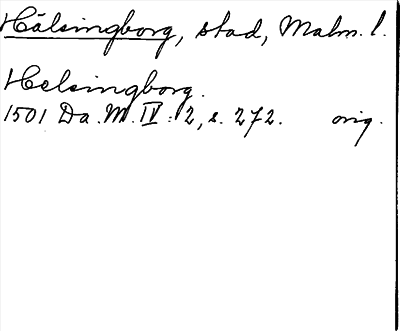 Hälsingborg, stad, Malm. l.
Helsingborg.
1501 Da. M. IV: 2, s. 272. orig.